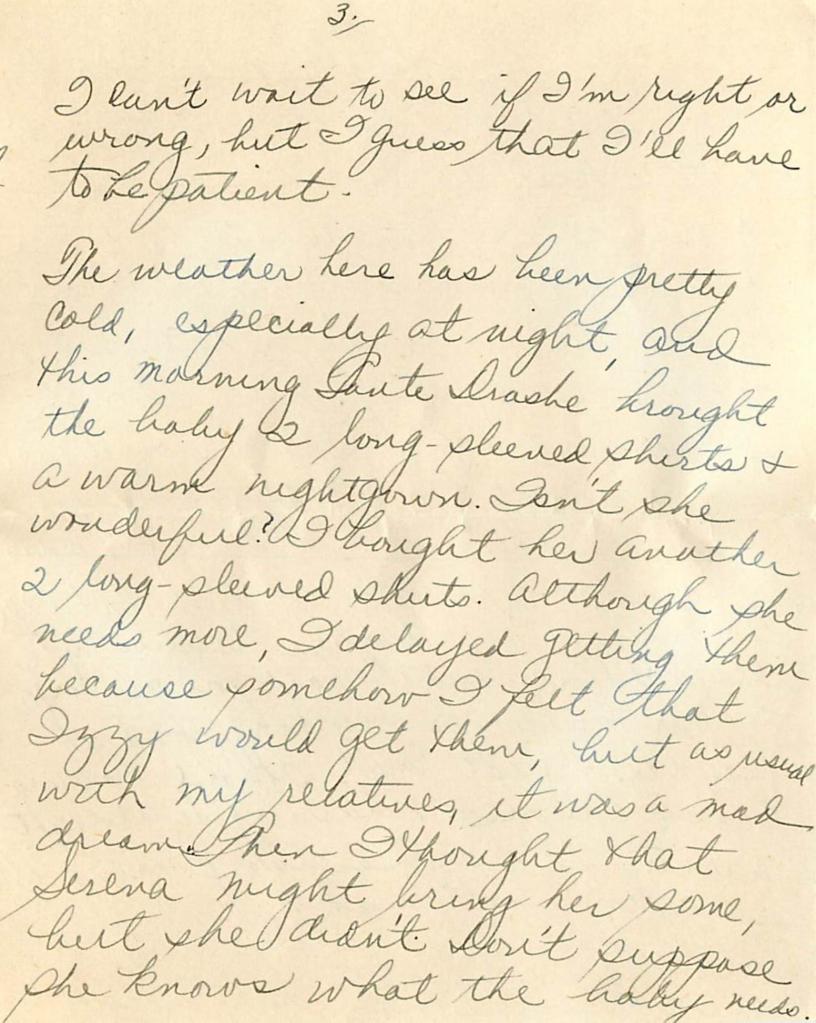 3.
I can't wait to see if I'm right or
wrong, but I guess that I'll have
to be patient.
The weather here has been pretty
cold, especially at night, and
this morning Tante Drashe brought
the baby 2 long-sleeved shirts &
a warm nightgown. Isn't she
wonderful? I bought her another
2 long-sleeved shirts. Although she
needs more, I delayed getting them
because somehow I felt that
Izzy would get them, but as usual
with my relatives, it was a mad
dream. Then I thought that
Serena might bring her some,
but she didn't. Don't suppose
she knows what the baby needs.